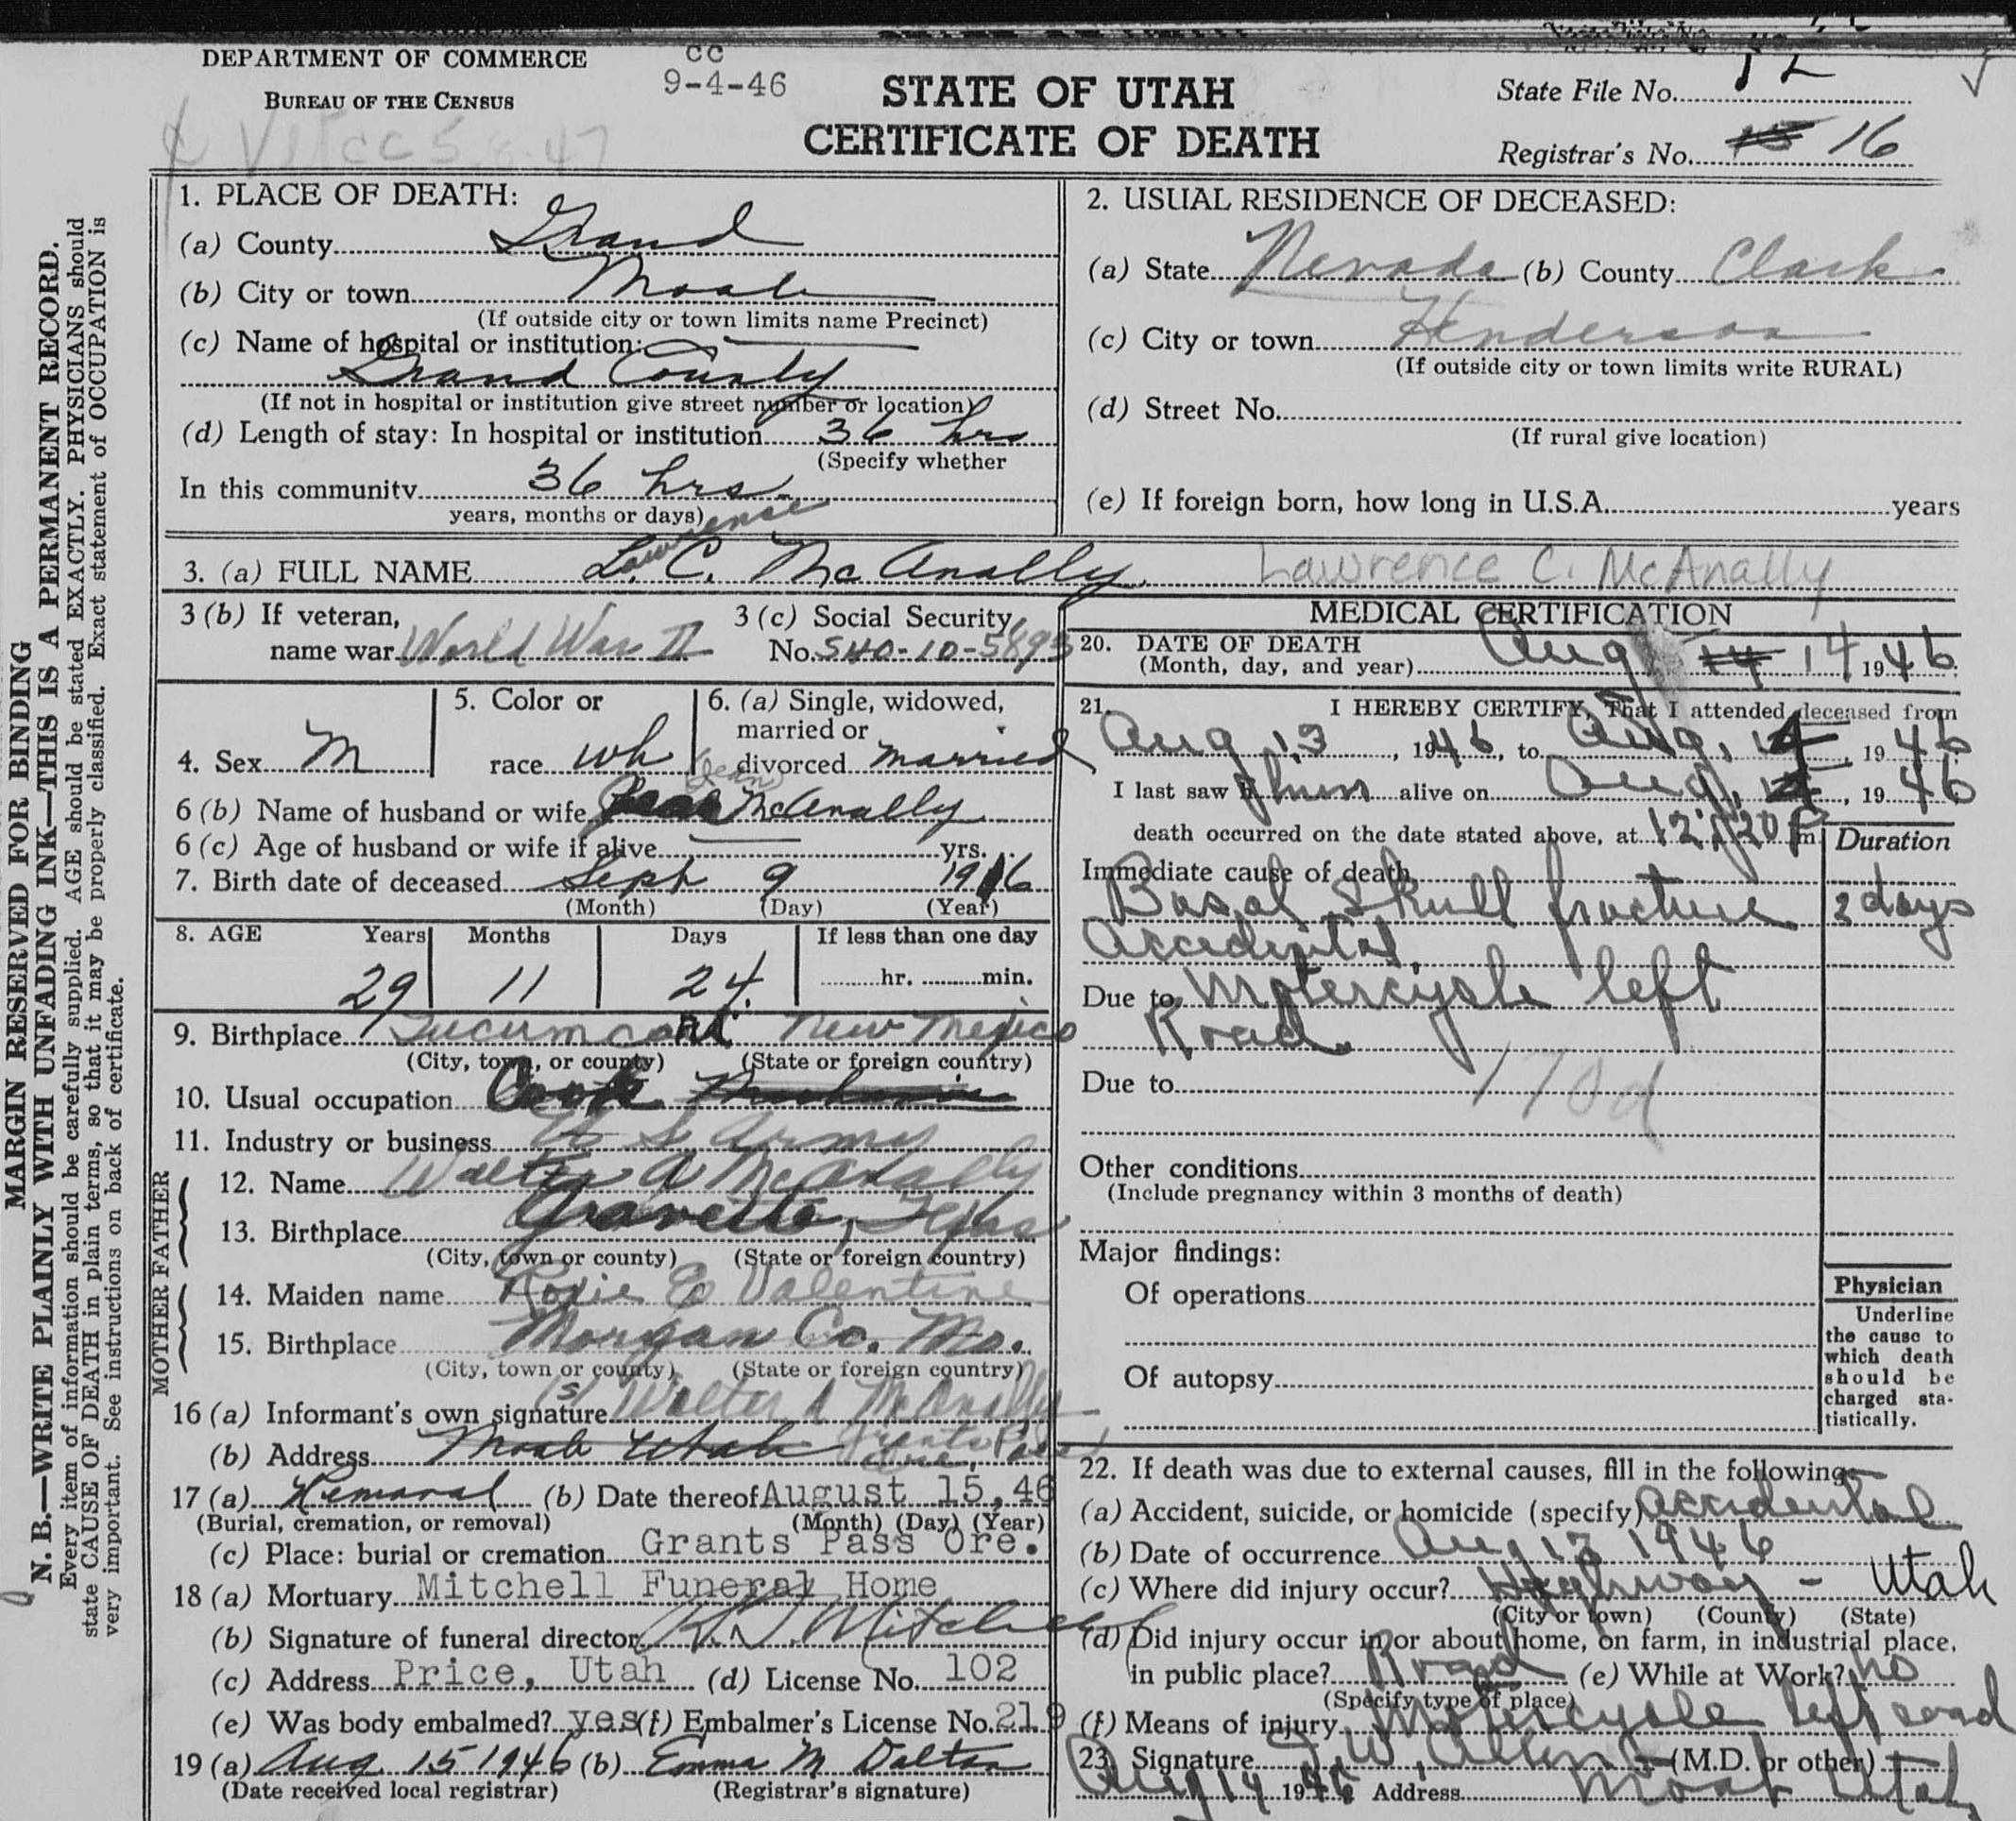 DEPARTMENT OF COMMERCE
BUREAU OF THE CENSUS
cc
9-4-46
STATE OF UTAH
CERTIFICATE OF DEATH
State File No.
Registrar's No. 16
MARGIN RESERVED FOR BINDING
N. B.—WRITE PLAINLY WITH UNFADING INK—THIS IS A PERMANENT RECORD.
Every item of information should be carefully supplied. AGE should be stated EXACTLY. PHYSICIANS should
state CAUSE OF DEATH in plain terms, so that it may be properly classified. Exact statement of OCCUPATION is
very important. See instructions on back of certificate.
1. PLACE OF DEATH:
(a) County Grand
(b) City or town Moab
(If outside city or town limits name Precinct)
(c) Name of hospital or institution:
Grand County
(If not in hospital or institution give street number or location)
(d) Length of stay: In hospital or institution 36 hrs
(Specify whether
In this community 36 hrs.
years, months or days)
2. USUAL RESIDENCE OF DECEASED:
(a) State Nevada (b) County Clark
(c) City or town Henderson
(If outside city or town limits write RURAL)
(d) Street No.
(If rural give location)
(e) If foreign born, how long in U.S.A. years
Lawrence
3. (a) FULL NAME L. C. McAnally Lawrence C. McAnally
3 (b) If veteran,
name war World War II
3 (c) Social Security
No. 540-10-5893
4. Sex M
5. Color or
race wh
6. (a) Single, widowed,
married or
divorced married
(Jean)
6 (b) Name of husband or wife McAnally
6 (c) Age of husband or wife if alive yrs.
7. Birth date of deceased Sept 9 1916
(Month) (Day) (Year)
8. AGE Years Months Days If less than one day
29 11 24 hr. min.
9. Birthplace Tucumcari New Mexico
(City, town, or county) (State or foreign country)
10. Usual occupation Cook
11. Industry or business U S Army
FATHER
12. Name Walter A McAnally
13. Birthplace Texas
(City, town or county) (State or foreign country)
MOTHER
14. Maiden name Roxie E Valentine
15. Birthplace Morgan Co. Mo.
(City, town or county) (State or foreign country)
16 (a) Informant's own signature Walter A McAnally
(b) Address Moab Utah Grants Pass Ore.
17 (a) Removal (b) Date thereof August 15, 46
(Burial, cremation, or removal) (Month) (Day) (Year)
(c) Place: burial or cremation Grants Pass Ore.
18 (a) Mortuary Mitchell Funeral Home
(b) Signature of funeral director Mitchell
(c) Address Price, Utah (d) License No. 102
(e) Was body embalmed? yes (f) Embalmer's License No. 219
19 (a) Aug. 15 1946 (b) Emma M Dalton
(Date received local registrar) (Registrar's signature)
MEDICAL CERTIFICATION
20. DATE OF DEATH
(Month, day, and year) Aug 14 1946
21. I HEREBY CERTIFY, That I attended deceased from
Aug 13, 1946, to Aug, 14, 1946
I last saw him alive on Aug, 14, 1946
death occurred on the date stated above, at 12:20 P m.
Duration
Immediate cause of death
Basal Skull fracture 2 days
Accidental
Due to Motercycle left
Road
170d
Due to
Other conditions
(Include pregnancy within 3 months of death)
Major findings:
Of operations
Of autopsy
Physician
Underline
the cause to
which death
should be
charged sta-
tistically.
22. If death was due to external causes, fill in the following:
(a) Accident, suicide, or homicide (specify) accidental
(b) Date of occurrence Aug 13 1946
(c) Where did injury occur? Highway - Utah
(City or town) (County) (State)
(d) Did injury occur in or about home, on farm, in industrial place,
in public place? Road (e) While at Work? no
(Specify type of place)
(f) Means of injury Motercycle left road
23. Signature Allen (M.D. or other)
Aug 14 1946 Address Moab Utah